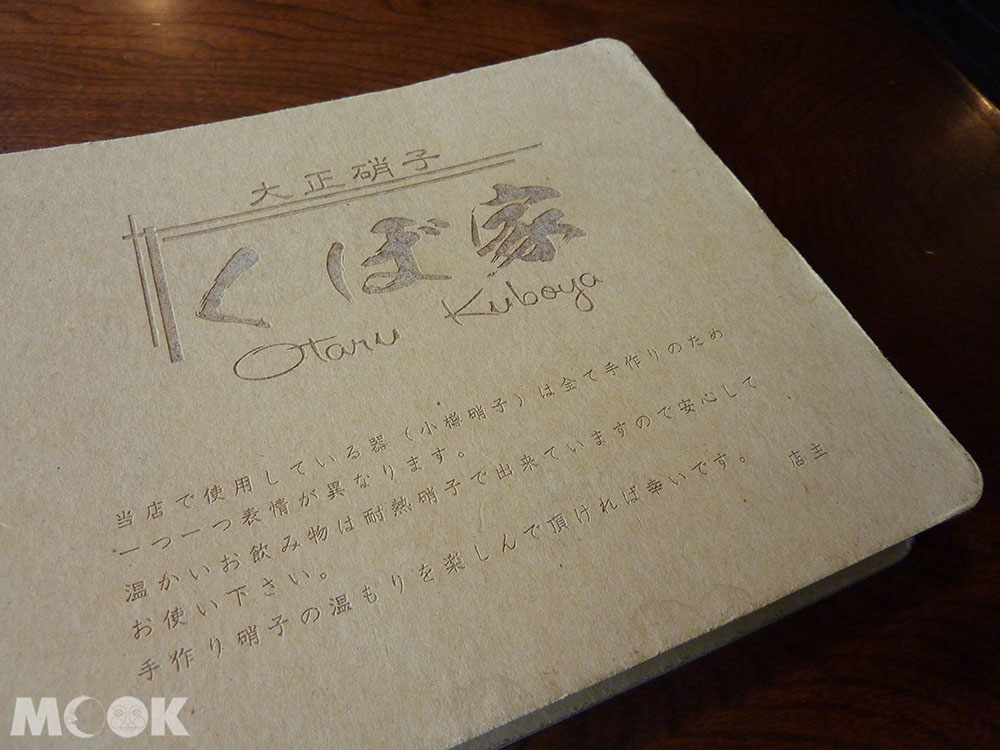 大正硝子
くぼ家
Otaru Kuboya
当店で使用している器（小樽硝子）は全て手作りのため
一つ一つ表情が異なります。
温かいお飲み物は耐熱硝子で出来ていますので安心して
お使い下さい。
手作り硝子の温もりを楽しんで頂ければ幸いです。　店主
MOOK